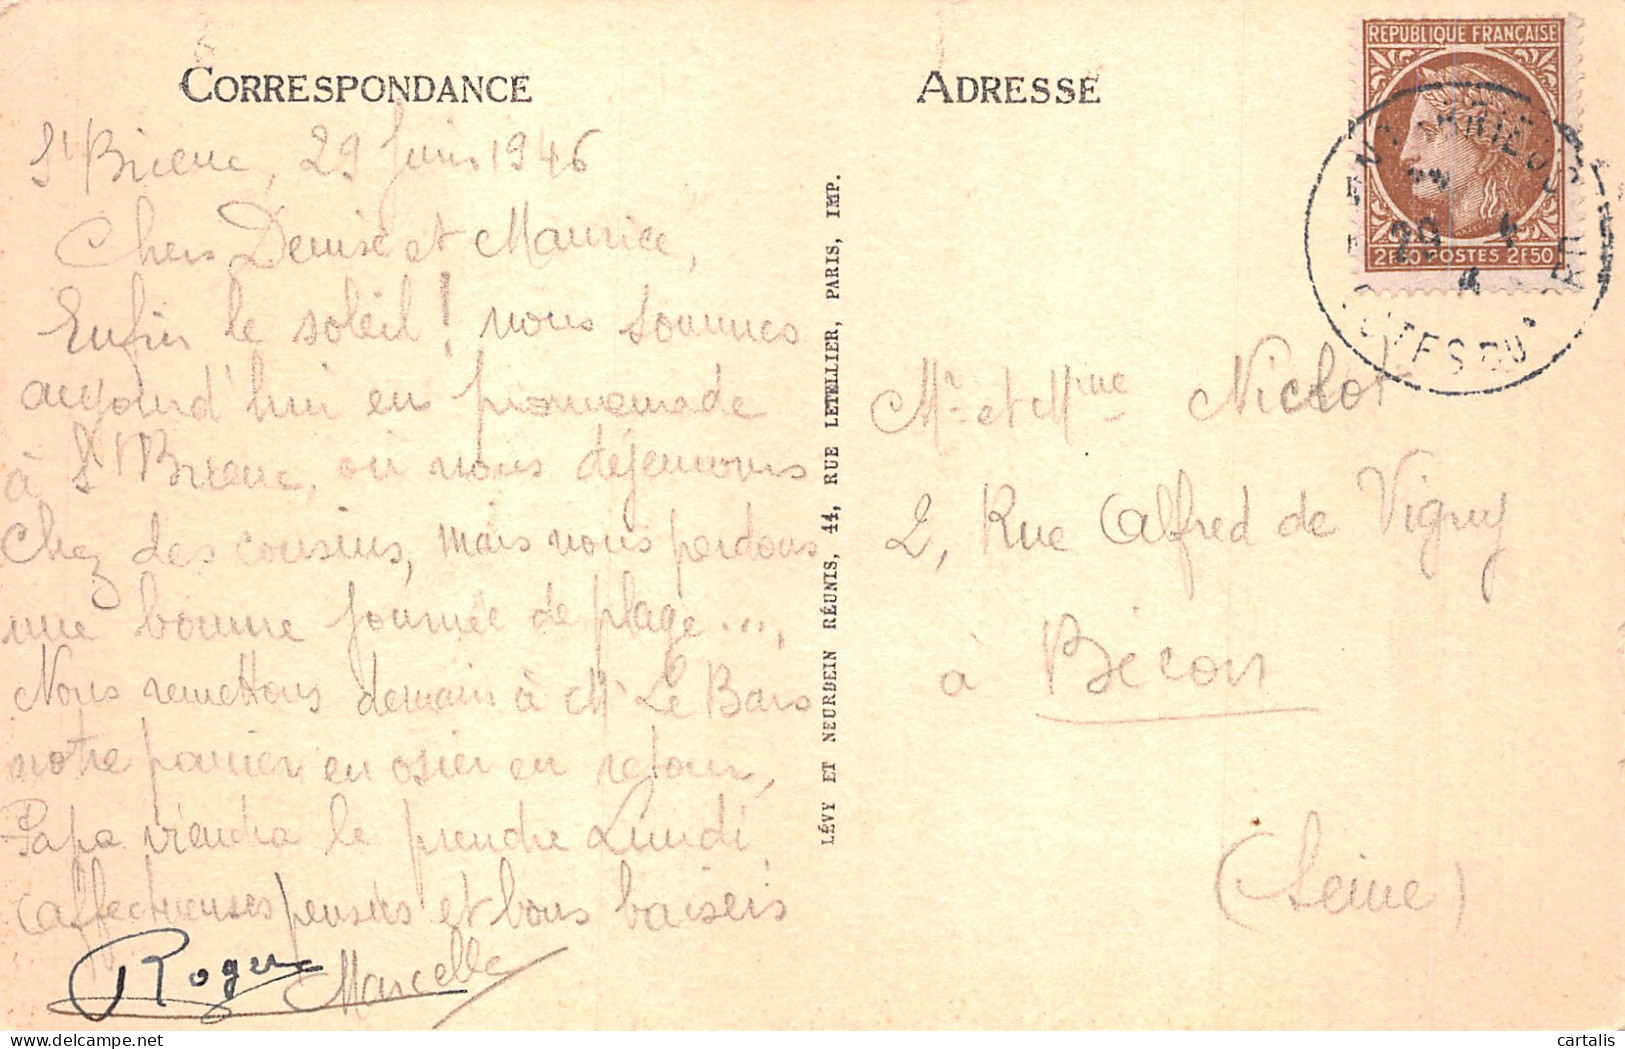 CORRESPONDANCE
St Brieuc, 29 Juin 1946
Chers Denise et Maurice,
Enfin le soleil ! nous sommes
aujourd'hui en promenade
à St Brieuc, où nous déjeunons
chez des cousins, mais nous perdons
une bonne journée de plage...,
Nous remettons demain à Mr Le Bars
notre panier en osier en retour,
Papa viendra le prendre Lundi.
Affectueuses pensées et bons baisers
Roger
Marcelle
LÉVY ET NEURDEIN RÉUNIS, 44, RUE LETELLIER, PARIS, IMP.
ADRESSE
RÉPUBLIQUE FRANÇAISE
2F50 POSTES 2F50
BRIEUC
29
COTES DU
Mr et Mme Niclot
2, Rue Alfred de Vigny
à Bécon
(Seine)
cartalis
delcampe.net